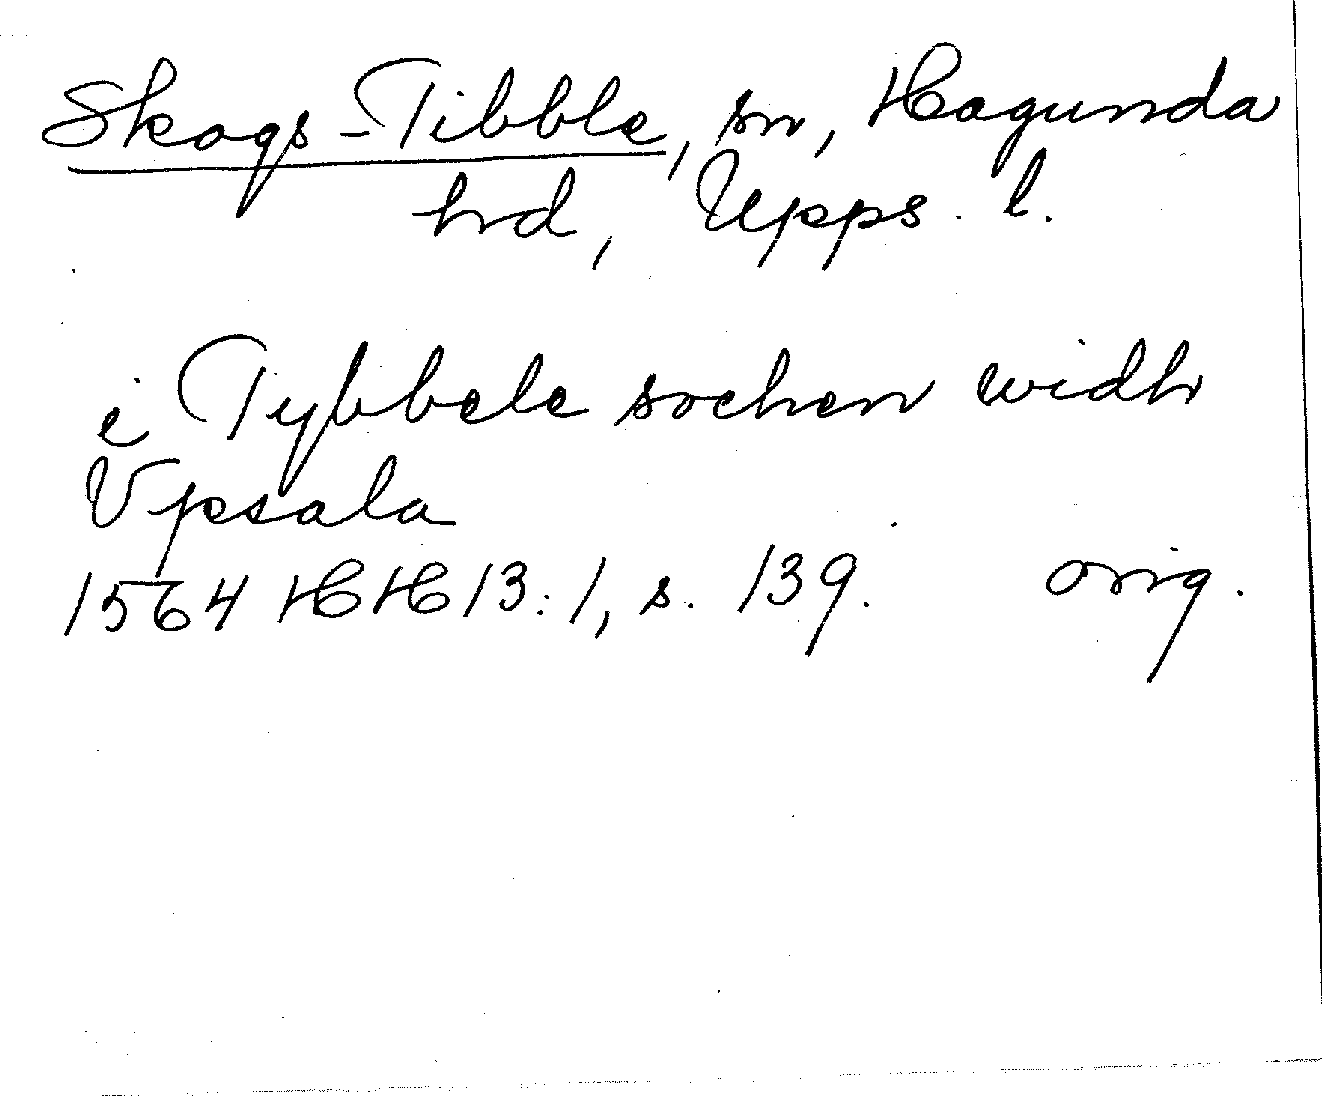 Skogs-Tibble, sn, Hagunda
hrd, Upps. l.
i Tybbele sochen widh
Vpsala
1564 HH 13:1, s. 139. orig.